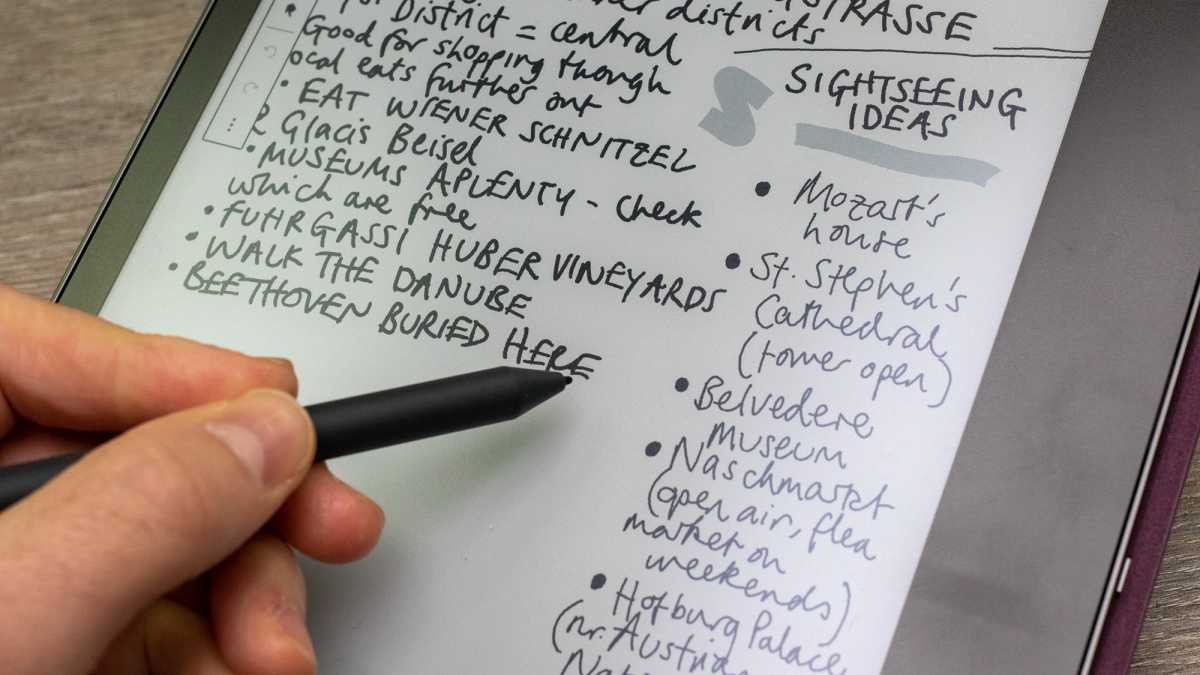 districts
District = central
Good for shopping though
ocal eats further out
• EAT WIENER SCHNITZEL
@ Glacis Beisel
• MUSEUMS APLENTY - check
which are free
• FUHRGASSI HUBER VINEYARDS
• WALK THE DANUBE
• BEETHOVEN BURIED HERE
STRASSE
SIGHTSEEING
IDEAS
• Mozart's
house
• St. Stephen's
Cathedral
(tower open)
• Belvedere
museum
• Naschmarkt
(open air, flea
market on
weekends)
• Hofburg Palace
(nr. Austrian